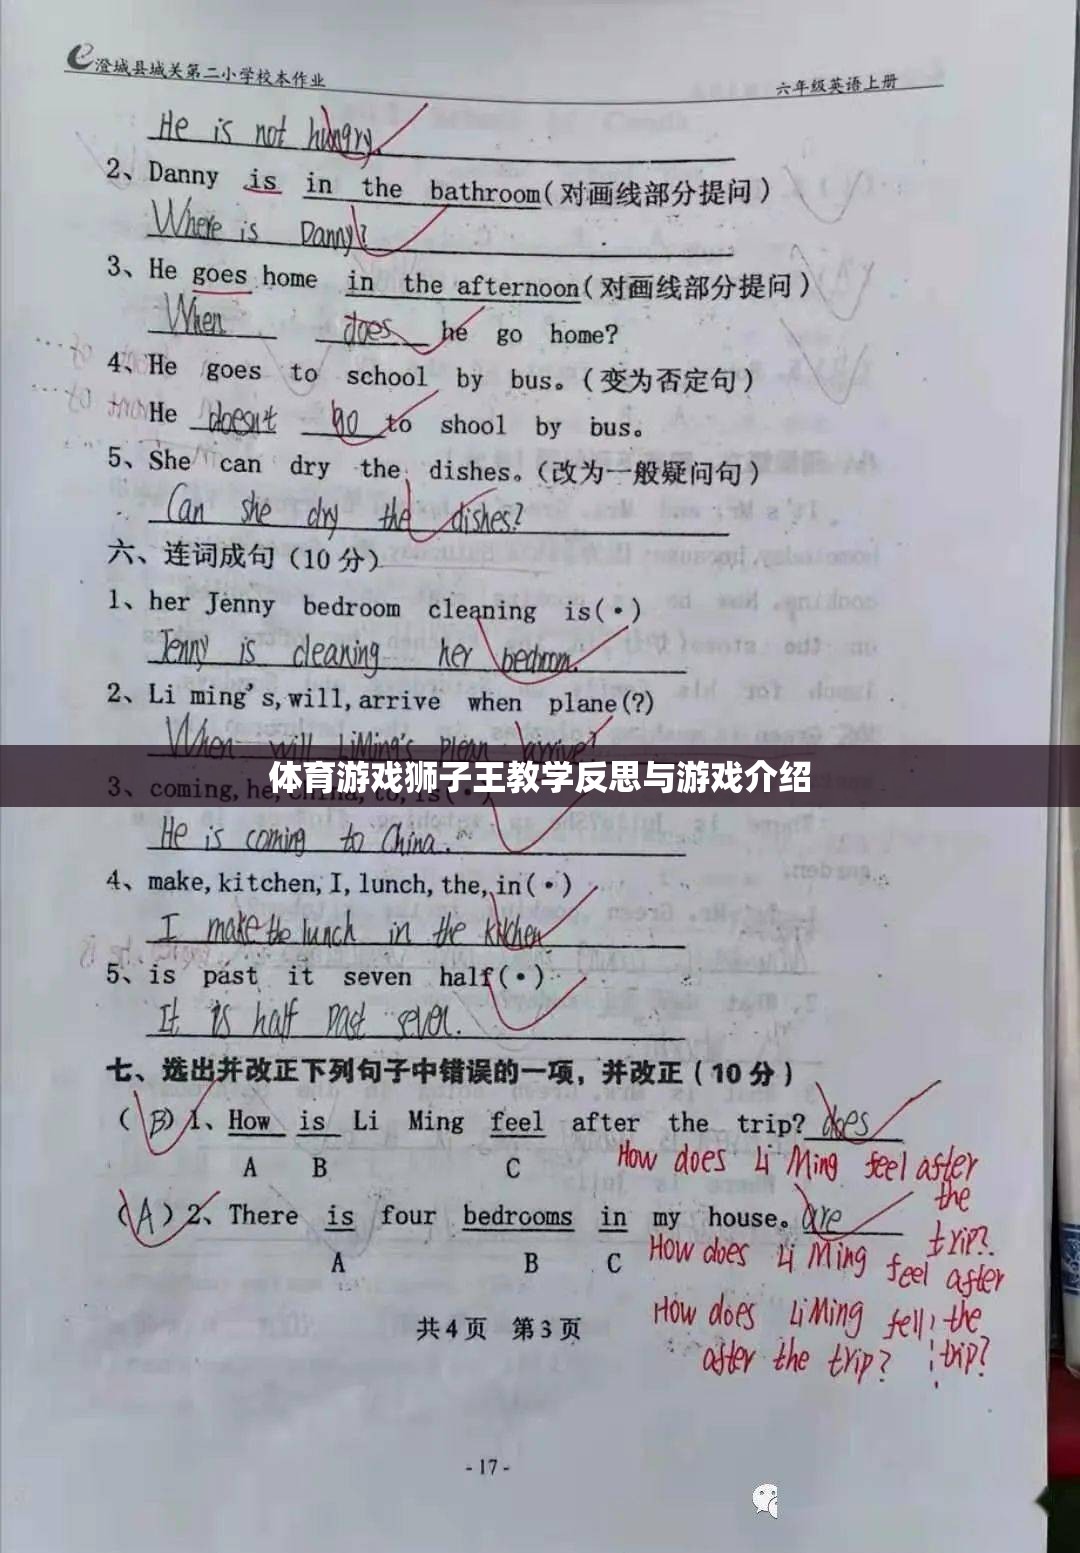 澄城县城关第二小学校本作业 六年级英语上册
He is not hungry.
2、Danny is in the bathroom(对画线部分提问)
Where is Danny?
3、He goes home in the afternoon(对画线部分提问)
When does he go home?
4、He goes to school by bus。(变为否定句)
He doesn't go to shool by bus。
5、She can dry the dishes。(改为一般疑问句)
Can she dry the dishes?
六、连词成句(10分)
1、her Jenny bedroom cleaning is(·)
Jenny is cleaning her bedroom.
2、Li ming's,will,arrive when plane(?)
When will LiMing's plean arrive?
体育游戏狮子王教学反思与游戏介绍
3、coming,he,China,to,is(·)
He is coming to China.
4、make,kitchen,I,lunch,the,in(·)
I make the lunch in the kitchen
5、is past it seven half(·)
It is half past seven.
七、选出并改正下列句子中错误的一项,并改正(10分)
(B)1、How is Li Ming feel after the trip? does
A B C
How does Li Ming feel after the trip?
(A)2、There is four bedrooms in my house。are
A B C
How does Li Ming feel after the trip?
How does LiMing fell
after the trip?
共4页 第3页
-17-